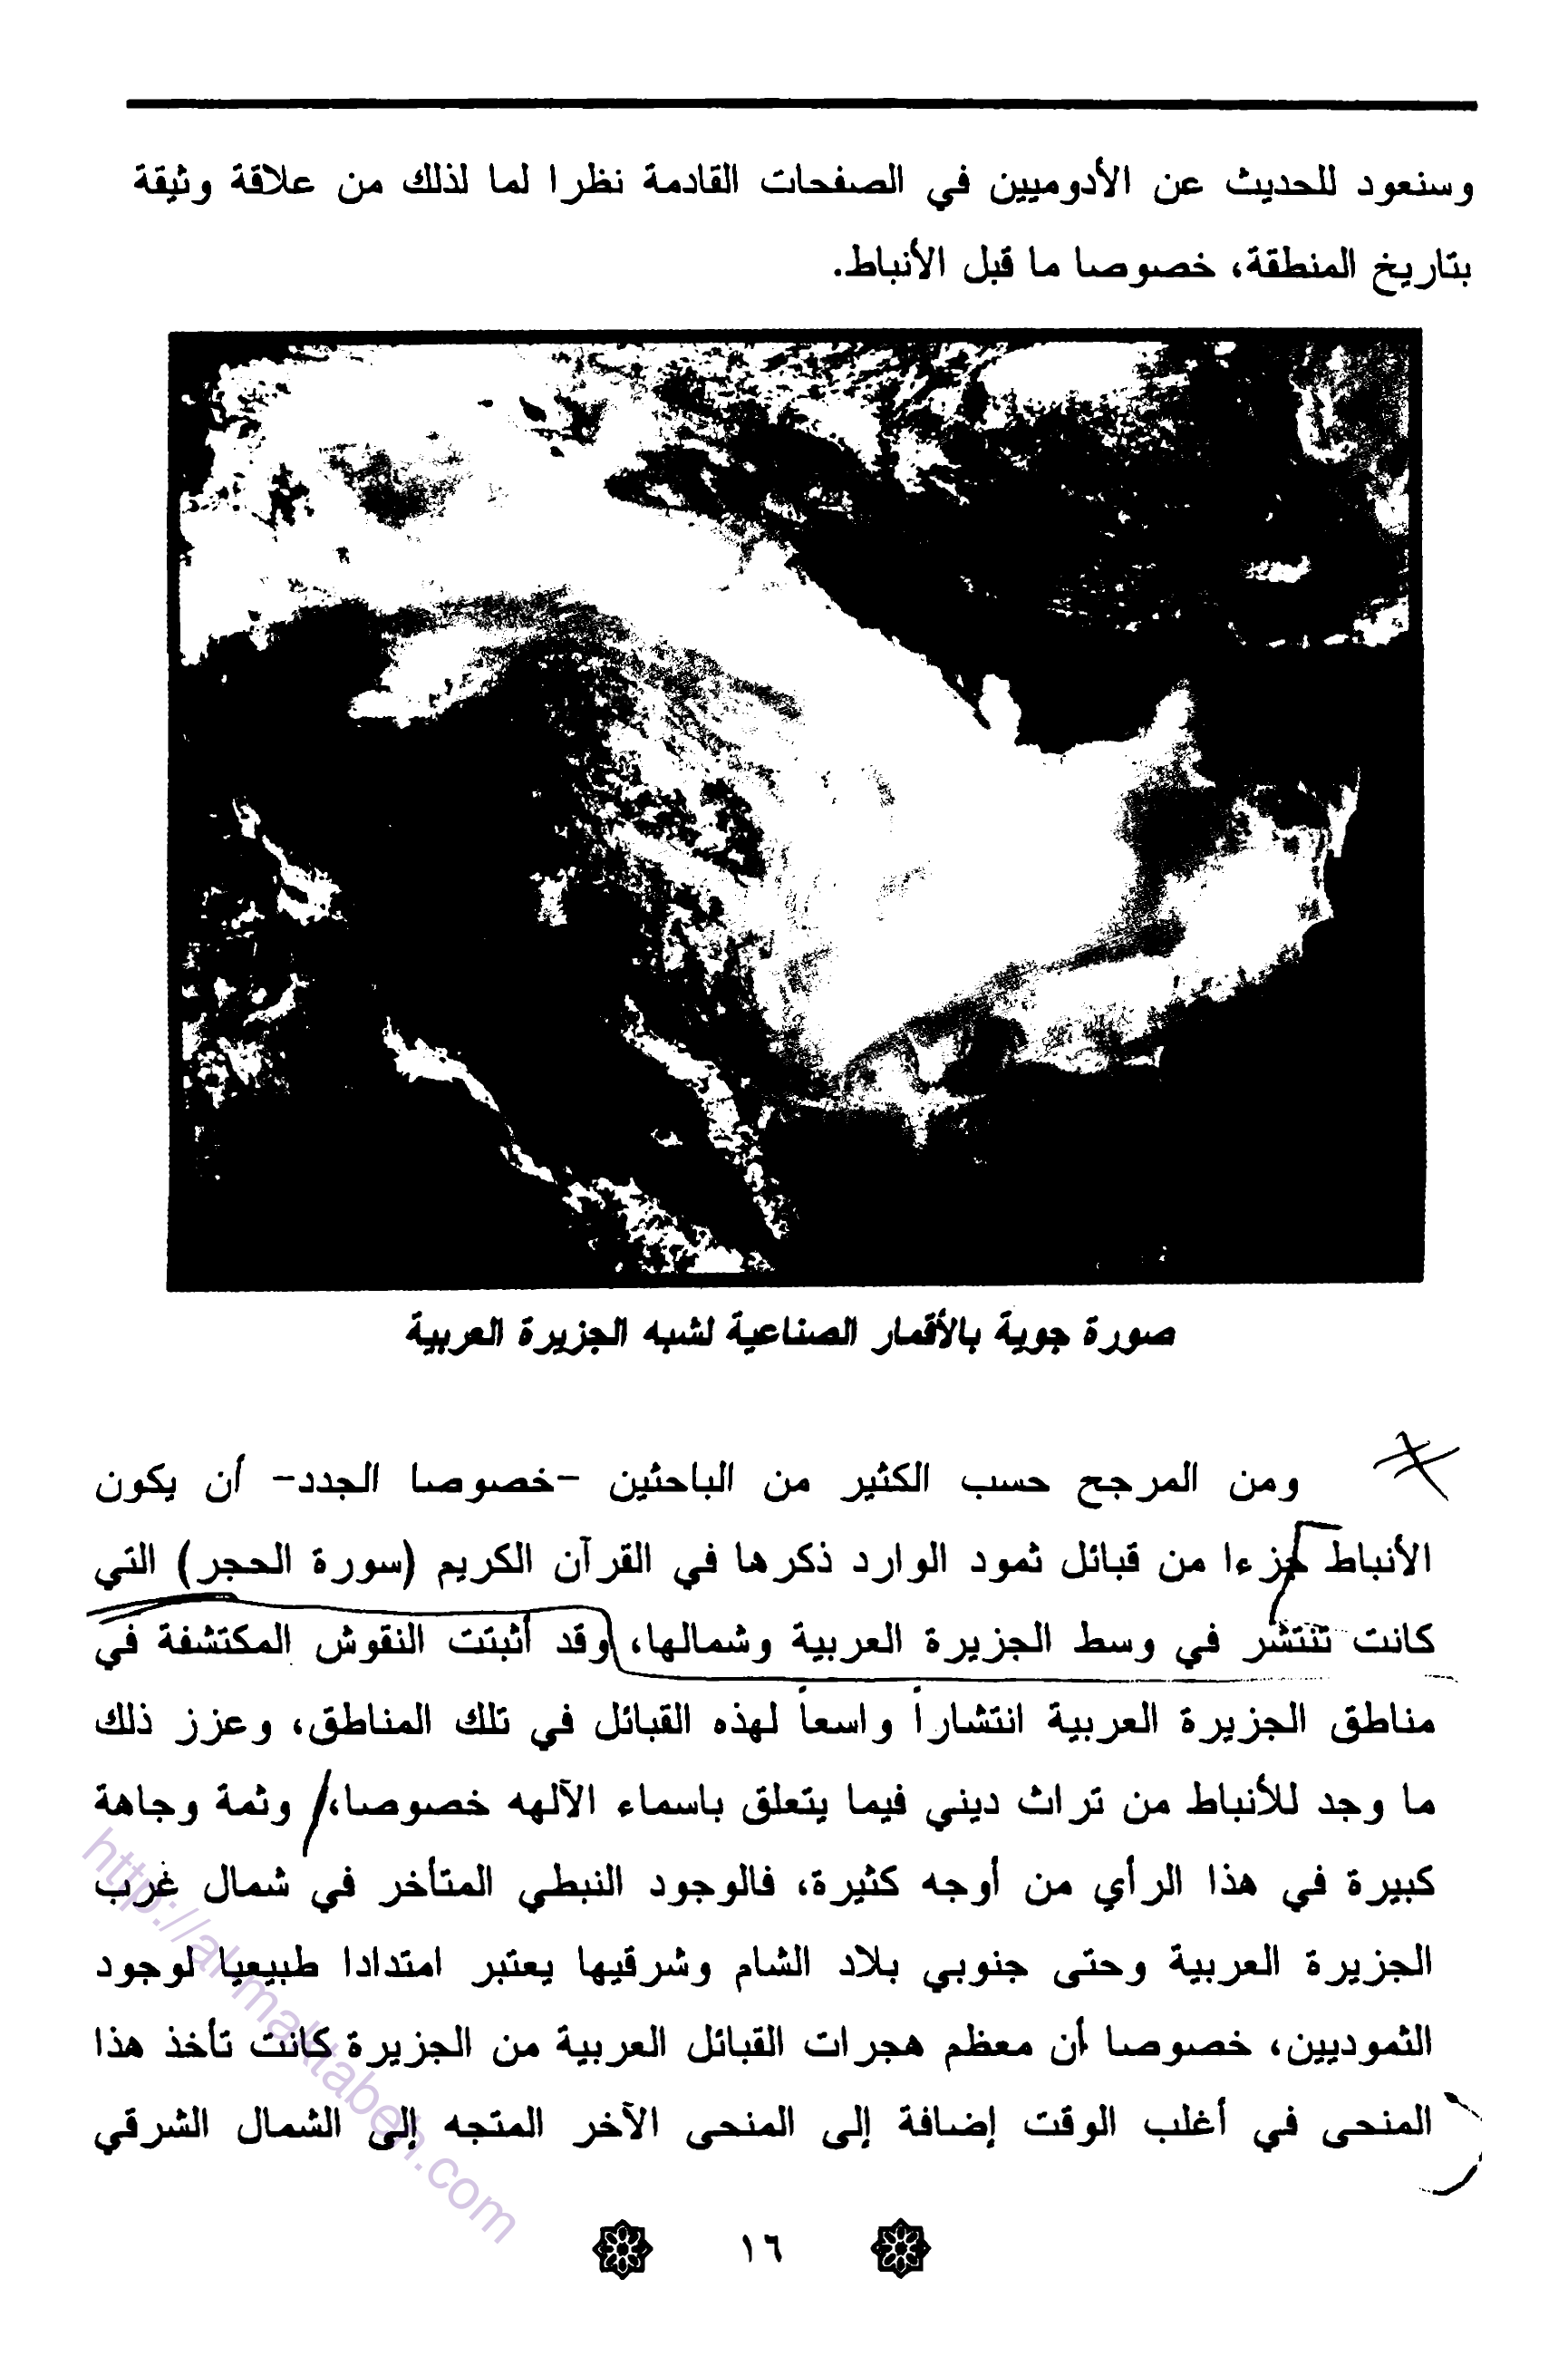 وسنعود للحديث عن الأدوميين في الصفحات القادمة نظرا لما لذلك من علاقة وثيقة
بتاريخ المنطقة، خصوصا ما قبل الأنباط.
صورة جوية بالأقمار الصناعية لشبه الجزيرة العربية
ومن المرجح حسب الكثير من الباحثين -خصوصا الجدد- أن يكون
الأنباط جزءا من قبائل ثمود الوارد ذكرها في القرآن الكريم (سورة الحجر) التي
كانت تنتشر في وسط الجزيرة العربية وشمالها، وقد أثبتت النقوش المكتشفة في
مناطق الجزيرة العربية انتشاراً واسعاً لهذه القبائل في تلك المناطق، وعزز ذلك
ما وجد للأنباط من تراث ديني فيما يتعلق باسماء الآلهه خصوصا، وثمة وجاهة
كبيرة في هذا الرأي من أوجه كثيرة، فالوجود النبطي المتأخر في شمال غرب
الجزيرة العربية وحتى جنوبي بلاد الشام وشرقيها يعتبر امتدادا طبيعيا لوجود
الثموديين، خصوصا أن معظم هجرات القبائل العربية من الجزيرة كانت تأخذ هذا
المنحى في أغلب الوقت إضافة إلى المنحى الآخر المتجه إلى الشمال الشرقي
١٦
http://al-maktabeh.com